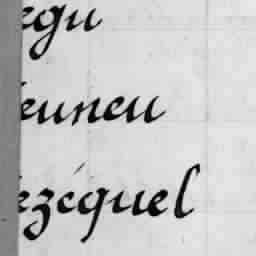 egu
euneu
ezéquel